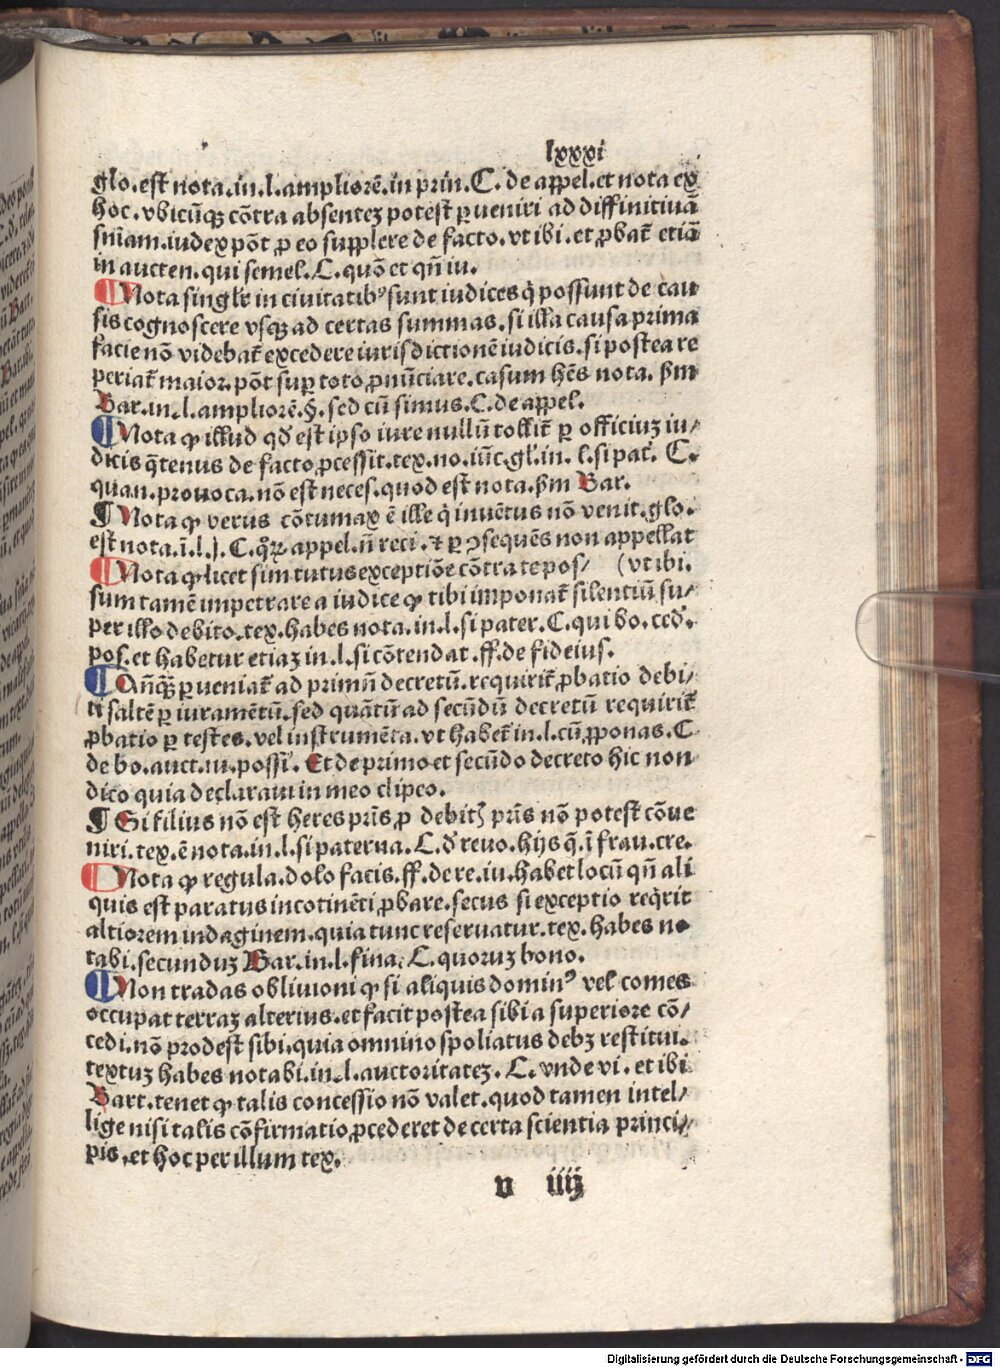 lxxxi
glo.est nota.in.l.ampliorē.in prin.C. de appel.et nota ex
hoc.vbicūqꝫ cōtra absentez potest ꝑueniri ad diffinitiuā
sniam.iudex pōt ꝓ eo supplere de facto.vt ibi.et ꝓbat̄ etiā
in aucten.qui semel.C.quō et qn̄ iu.
¶ Nota singl'r in ciuitatibꝰ sunt iudices q̇ possunt de cau
sis cognoscere vsqꝫ ad certas summas.si illa causa prima
facie nō videbat̄ excedere iurisdictionē iudicis.si postea re
periat̄ maior.pōt suꝑ toto ꝓnūciare.casum hēs nota. ẜm
Bar.in.l.ampliorē.§.sed cū simus.C.de appel.
¶ Nota ꝙ illud qd̓ est ipso iure nullū tollit̄ ꝑ officiuz iu/
dicis q̄tenus de facto ꝓcessit.tex.no.iūc.gl̓.in. l.si pat̓. C.
quan.prouoca.nō est neces.quod est nota.ẜm Bar.
¶ Nota ꝙ verus cōtumax ē ille q̇ inuētus nō venit.glo.
est nota.ī.l.j.C.qōꝝ appel.n̄ reci.⁊ ꝑ ꝯsequēs non appellat
¶ Nota ꝙ licet sim tutus exceptiōe cōtra te pos/ (vt ibi.
sum tamē impetrare a iudice ꝙ tibi imponat̄ silentiū su/
per illo debito.tex.habes nota.in.l.si pater.C.qui bo.ced̓.
pos.et habetur etiaz in.l.si cōtendat.ff.de fideius.
¶ Anq̄ꝫ ꝑueniat̄ ad primū decretū.requirit̄ ꝓbatio debi/
ti saltē ꝑ iuramētū.sed quātū ad secūdū decretū requirit̄
ꝓbatio ꝑ testes.vel instrumēta.vt habet̄ in.l.cū ꝓponas.C
de bo.auct.iu.possi. Et de primo et secūdo decreto hic non
dico quia declaraui in meo clipeo.
¶ Si filius nō est heres pr̄is.ꝓ debitꝭ pr̄is nō potest cōue
niri.tex.ē nota.in.l.si paterna.C.d̓ reuo.hijs q̄.ī frau.cre.
¶ Nota ꝙ regula.dolo facis.ff.de re.iu.habet locū qn̄ ali
quis est paratus incotinēti ꝓbare.secus si exceptio reqͥrit
altiorem indaginem.quia tunc reseruatur.tex.habes no
tabi.secunduz Bar.in.l.fina. C.quoruz bono.
¶ Non tradas obliuioni ꝙ si aliquis dominꝰ vel comes
occupat terraz alterius.et facit postea sibi a superiore cō/
cedi.nō prodest sibi.quia omnino spoliatus debꝫ restitui.
textuz habes notabi.in.l.auctoritatez. C. vnde vi. et ibi
Bart.tenet ꝙ talis concessio nō valet.quod tamen intel/
lige nisi talis cōfirmatio ꝓcederet de certa scientia princi/
pis.et hoc per illum tex.
v iiij
Digitalisierung gefördert durch die Deutsche Forschungsgemeinschaft - DFG